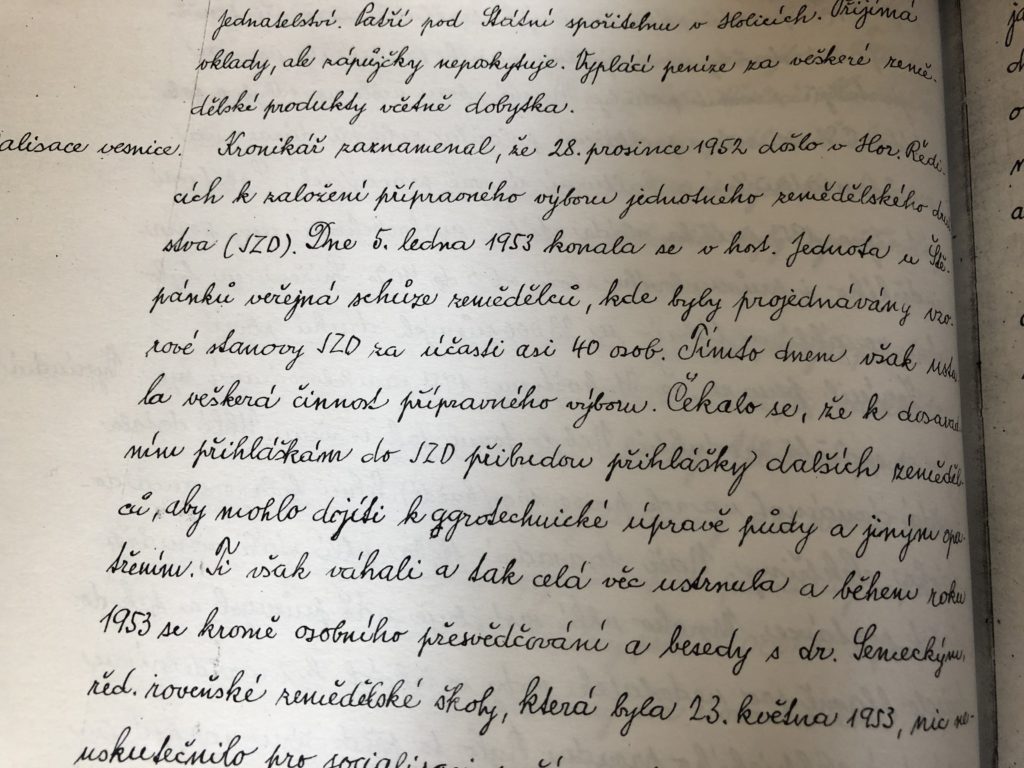 jednatelství. Patří pod Státní spořitelnu v Holicích. Přijímá
vklady, ale zápůjčky neposkytuje. Vyplácí peníze za veškeré země-
dělské produkty včetně dobytka.
alisace vesnice. Kronikář zaznamenal, že 28. prosince 1952 došlo v Hor. Ředi-
cích k založení přípravného výboru jednotného zemědělského druž
stva (JZD). Dne 5. ledna 1953 konala se v host. Jednota u Ště-
pánků veřejná schůze zemědělců, kde byly projednávány vzo-
rové stanovy JZD za účasti asi 40 osob. Tímto dnem však usta
la veškerá činnost přípravného výboru. Čekalo se, že k dosavad
ním přihláškám do JZD přibudou přihlášky dalších zeměděl-
ců, aby mohlo dojíti k ggrotechnické úpravě půdy a jiným opa-
třením. Ti však váhali a tak celá věc ustrnula a během roku
1953 se kromě osobního přesvědčování a besedy s dr. Semeckým,
řed. roveňské zemědělské školy, která byla 23. května 1953, nic ne-
uskutečnilo pro socialisaci